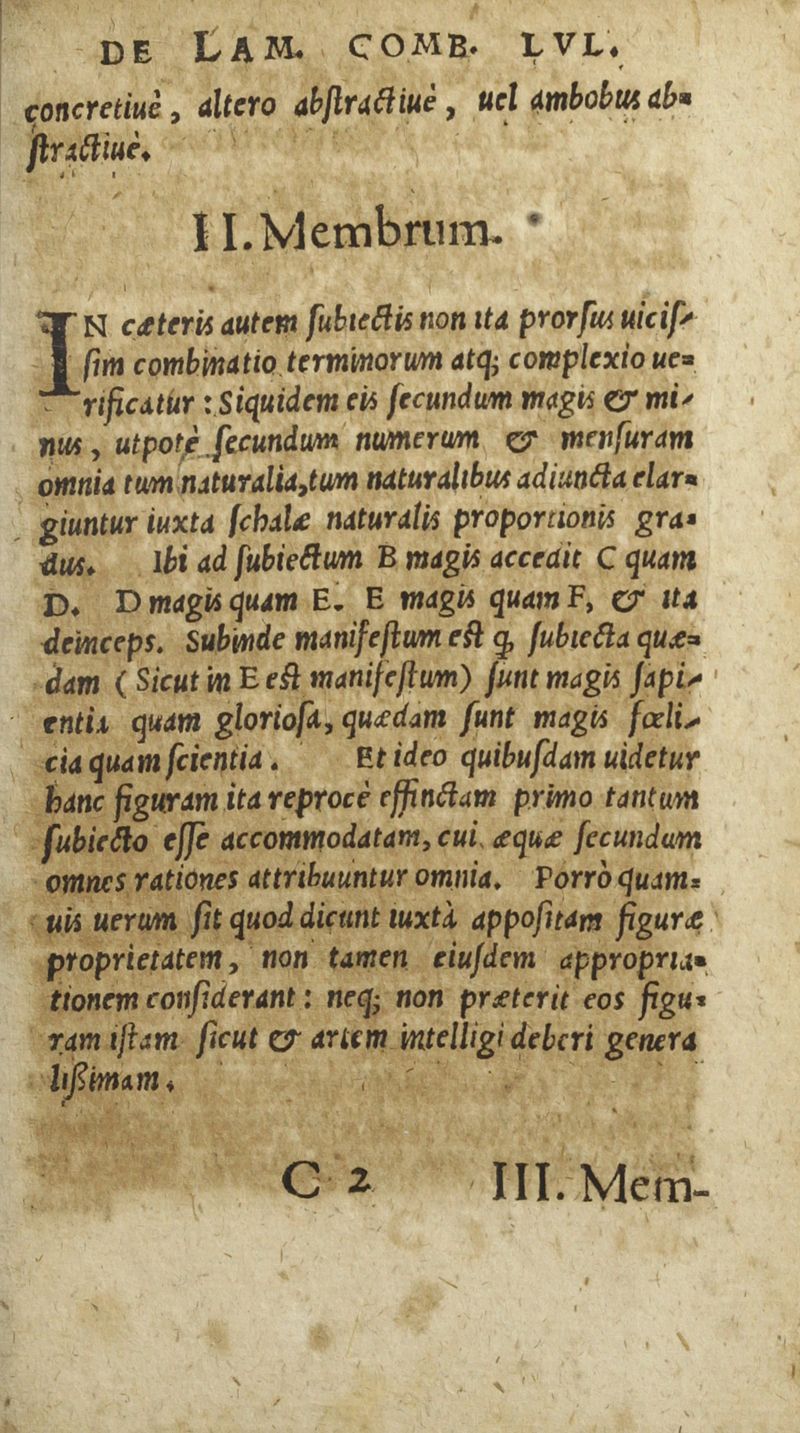 DE LAM. COMB. LVL.
concretiuè, altero abſtractiuè, uel ambobus ab=
ſtractiuè.
II. Membrum.
IN cæteris autem ſubiectis non ita prorſus uiciſ-
ſim combinatio terminorum atq; complexio ue=
rificatur : Siquidem eis ſecundum magis & mi-
nus, utpotè ſecundum numerum & menſuram
omnia tum naturalia, tum naturalibus adiuncta elar=
giuntur iuxta ſchalæ naturalis proportionis gra=
dus. Ibi ad ſubiectum B magis accedit C quam
D. D magis quam E. E magis quam F, & ita
deinceps. Subinde manifeſtum eſt ꝙ ſubiecta quæ=
dam ( Sicut in E eſt manifeſtum) ſunt magis ſapi-
entia quam glorioſa, quædam ſunt magis fœli-
cia quam ſcientia. Et ideo quibuſdam uidetur
hanc figuram ita reprocè effinctam primo tantum
ſubiecto eſſe accommodatam, cui æquæ ſecundum
omnes rationes attribuuntur omnia. Porrò quam=
uis uerum ſit quod dicunt iuxtà appoſitam figuræ
proprietatem, non tamen eiuſdem appropria=
tionem conſiderant : neq; non præterit eos figu=
ram iſtam ſicut & artem intelligi deberi genera
lißimam.
C 2 III. Mem-